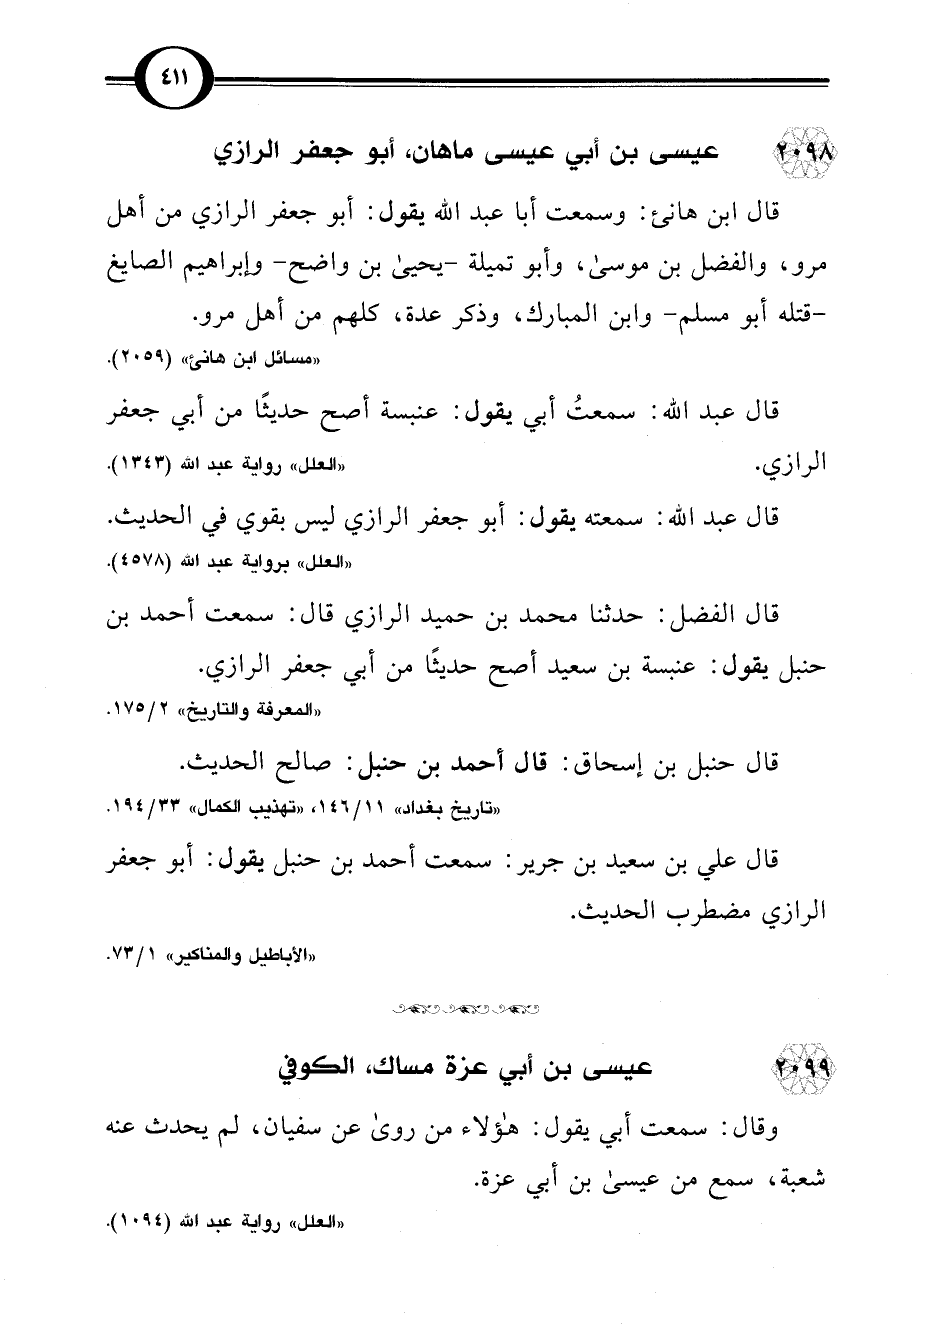 ٤١١
٢٠٩٨ عيسى بن أبي عيسى ماهان، أبو جعفر الرازي
قال ابن هانئ: وسمعت أبا عبد الله يقول: أبو جعفر الرازي من أهل
مرو، والفضل بن موسىٰ، وأبو تميلة -يحيىٰ بن واضح- وإبراهيم الصايغ
-قتله أبو مسلم- وابن المبارك، وذكر عدة، كلهم من أهل مرو.
«مسائل ابن هانئ» (٢٠٥٩).
قال عبد الله: سمعتُ أبي يقول: عنبسة أصح حديثًا من أبي جعفر
الرازي. «العلل» رواية عبد الله (١٣٤٣).
قال عبد الله: سمعته يقول: أبو جعفر الرازي ليس بقوي في الحديث.
«العلل» برواية عبد الله (٤٥٧٨).
قال الفضل: حدثنا محمد بن حميد الرازي قال: سمعت أحمد بن
حنبل يقول: عنبسة بن سعيد أصح حديثًا من أبي جعفر الرازي.
«المعرفة والتاريخ» ٢/ ١٧٥.
قال حنبل بن إسحاق: قال أحمد بن حنبل: صالح الحديث.
«تاريخ بغداد» ١١/ ١٤٦، «تهذيب الكمال» ٣٣/ ١٩٤.
قال علي بن سعيد بن جرير: سمعت أحمد بن حنبل يقول: أبو جعفر
الرازي مضطرب الحديث.
«الأباطيل والمناكير» ١/ ٧٣.
٢٠٩٩ عيسى بن أبي عزة مساك، الكوفي
وقال: سمعت أبي يقول: هؤلاء من روىٰ عن سفيان، لم يحدث عنه
شعبة، سمع من عيسىٰ بن أبي عزة.
«العلل» رواية عبد الله (١٠٩٤).